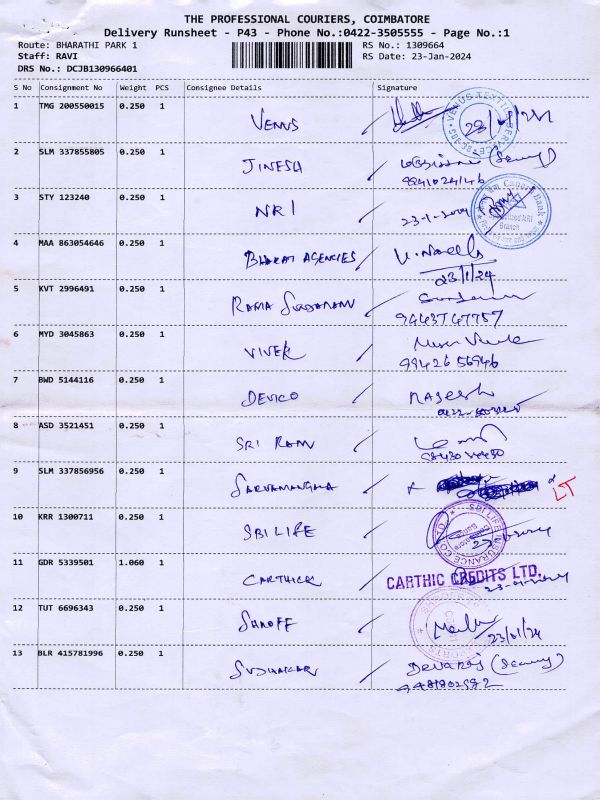 THE PROFESSIONAL COURIERS, COIMBATORE
Delivery Runsheet - P43 - Phone No.:0422-3505555 - Page No.:1
Route: BHARATHI PARK 1 RS No.: 1309664
Staff: RAVI RS Date: 23-Jan-2024
DRS No.: DCJB130966401
S No Consignment No Weight PCS Consignee Details Signature
1 TMG 200550015 0.250 1 VENUS
2 SLM 337855805 0.250 1 JINESH
3 STY 123240 0.250 1 NRI 23-1-2024
Canara Bank
Branch
4 MAA 863054646 0.250 1 BHARAT AGENCIES
23/1/24
5 KVT 2996491 0.250 1 RAMA SUNDARAM
9443747757
6 MYD 3045863 0.250 1 VIVEK
99426 56946
7 BWD 5144116 0.250 1 DEVICO Rajesh
8 ASD 3521451 0.250 1 SRI RAM
9 SLM 337856956 0.250 1 SARVAMANGALA
LT
10 KRR 1300711 0.250 1 SBI LIFE
SBI LIFE INSURANCE CO LTD
11 GDR 5339501 1.060 1 CARTHICK CARTHIC CREDITS LTD.
12 TUT 6696343 0.250 1 SHROFF
23/01/24
13 BLR 415781996 0.250 1 SUDHAKAR Devaraj